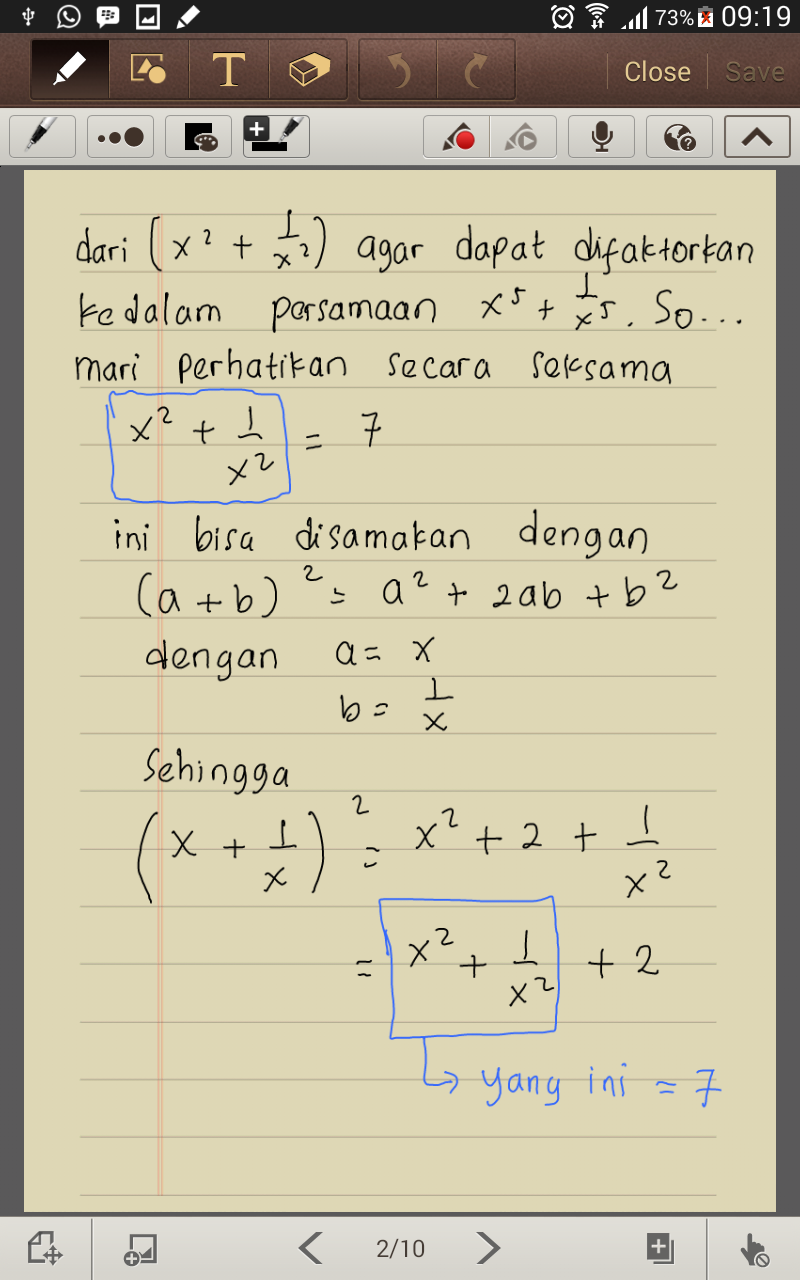 73% 09:19
T Close Save
dari (x² + 1/x²) agar dapat difaktorkan
kedalam persamaan x⁵ + 1/x⁵. So...
mari perhatikan secara seksama
x² + 1/x² = 7
ini bisa disamakan dengan
(a + b)² = a² + 2ab + b²
dengan a = x
b = 1/x
Sehingga
(x + 1/x)² = x² + 2 + 1/x²
= x² + 1/x² + 2
→ yang ini = 7
2/10